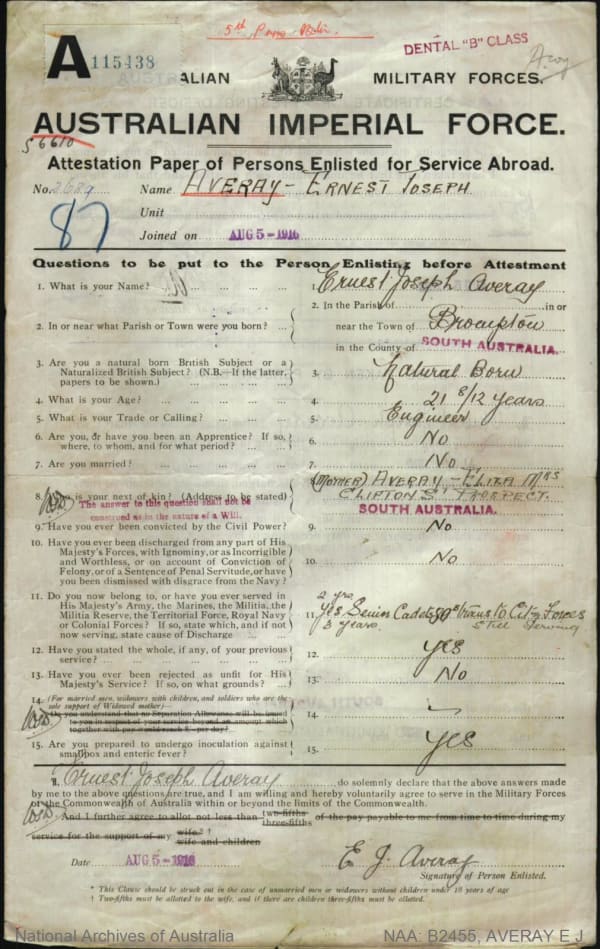 5th
DENTAL "B" CLASS
A 115438
ALIAN MILITARY FORCES.
AUSTRALIAN IMPERIAL FORCE.
56610
Attestation Paper of Persons Enlisted for Service Abroad.
No. Name AVERAY - ERNEST JOSEPH
87 Unit
Joined on AUG 5-1916
Questions to be put to the Person Enlisting before Attestment
1. What is your Name? ... 1. Ernest Joseph Averay
2. In or near what Parish or Town were you born? ... 2. In the Parish of ... in or
near the Town of Brompton
in the County of SOUTH AUSTRALIA.
3. Are you a natural born British Subject or a
Naturalized British Subject? (N.B.—If the latter,
papers to be shown.) 3. Natural Born
4. What is your Age? 4. 21 8/12 years
5. What is your Trade or Calling? 5. Engineer
6. Are you, or have you been an Apprentice? If so,
where, to whom, and for what period? 6. No
7. Are you married? 7. No
8. is your next of kin? (Address to be stated) (MOTHER) AVERAY - ELIZA MRS
CLIFTON ST PROSPECT.
The answer to this question shall not be
construed as in the nature of a Will.
SOUTH AUSTRALIA.
9. Have you ever been convicted by the Civil Power? 9. No
10. Have you ever been discharged from any part of His
Majesty's Forces, with Ignominy, or as Incorrigible
and Worthless, or on account of Conviction of
Felony, or of a Sentence of Penal Servitude, or have
you been dismissed with disgrace from the Navy? 10. No
11. Do you now belong to, or have you ever served in
His Majesty's Army, the Marines, the Militia, the
Militia Reserve, the Territorial Force, Royal Navy
or Colonial Forces? If so, state which, and if not
now serving, state cause of Discharge
2 yrs
11. Yes Senior Cadets trans to Citz Forces
3 years still serving
12. Have you stated the whole, if any, of your previous
service? 12. yes
13. Have you ever been rejected as unfit for His
Majesty's Service? If so, on what grounds? 13. No
14. (For married men, widowers with children, and soldiers who are the
sole support of Widowed mother)—
Do you understand that no Separation Allowance will be issued
to you in respect of your service beyond an amount which
together with pay would reach 8/- per day? 14. —
15. Are you prepared to undergo inoculation against
smallpox and enteric fever? 15. yes
I, Ernest Joseph Averay do solemnly declare that the above answers made
by me to the above questions are true, and I am willing and hereby voluntarily agree to serve in the Military Forces
of the Commonwealth of Australia within or beyond the limits of the Commonwealth.
*And I further agree to allot not less than two-fifths
three-fifths of the pay payable to me from time to time during my
service for the support of my wife.* †
wife and children
Date AUG 5-1916 E. J. Averay
Signature of Person Enlisted.
* This Clause should be struck out in the case of unmarried men or widowers without children under 18 years of age
† Two-fifths must be allotted to the wife, and if there are children three-fifths must be allotted.
National Archives of Australia NAA: B2455, AVERAY E J